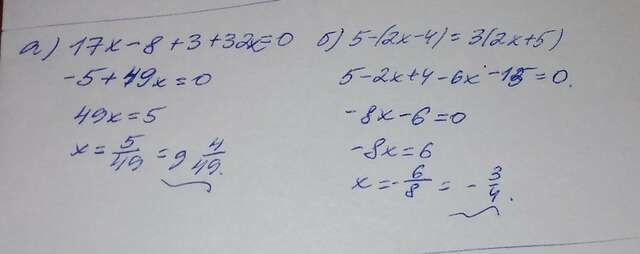 а) 17x - 8 + 3 + 32x = 0
-5 + 49x = 0
49x = 5
x = 5/49 = 9 4/49.
б) 5-(2x-4) = 3(2x+5)
5 - 2x + 4 - 6x - 15 = 0.
-8x - 6 = 0
-8x = 6
x = -6/8 = -3/4.